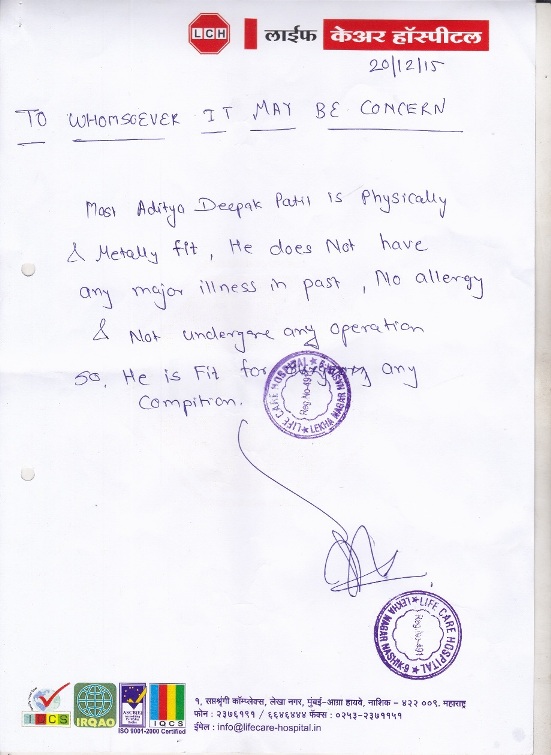 LCH
लाईफ केअर हॉस्पीटल
20/12/15
TO WHOMSOEVER IT MAY BE CONCERN
Mast Aditya Deepak Patil is Physically
& Metally fit, He does Not have
any major illness in past, No allergy
& Not undergone any operation
so, He is Fit for any
Compition.
LIFE CARE HOSPITAL
LEKHA NAGAR
Reg No-491
LIFE CARE HOSPITAL
LEKHA NAGAR NASHIK-9
Reg. No-491
IQCS
IRQAO
IQCS
ISO 9001-2000 Certified
१, सप्तश्रृंगी कॉम्प्लेक्स, लेखा नगर, मुंबई-आग्रा हायवे, नाशिक - ४२२ ००९. महाराष्ट्र
फोन : २३७६१९१ / ६६४६४४४ फॅक्स : ०२५३-२३७११५१
ईमेल : info@lifecare-hospital.in